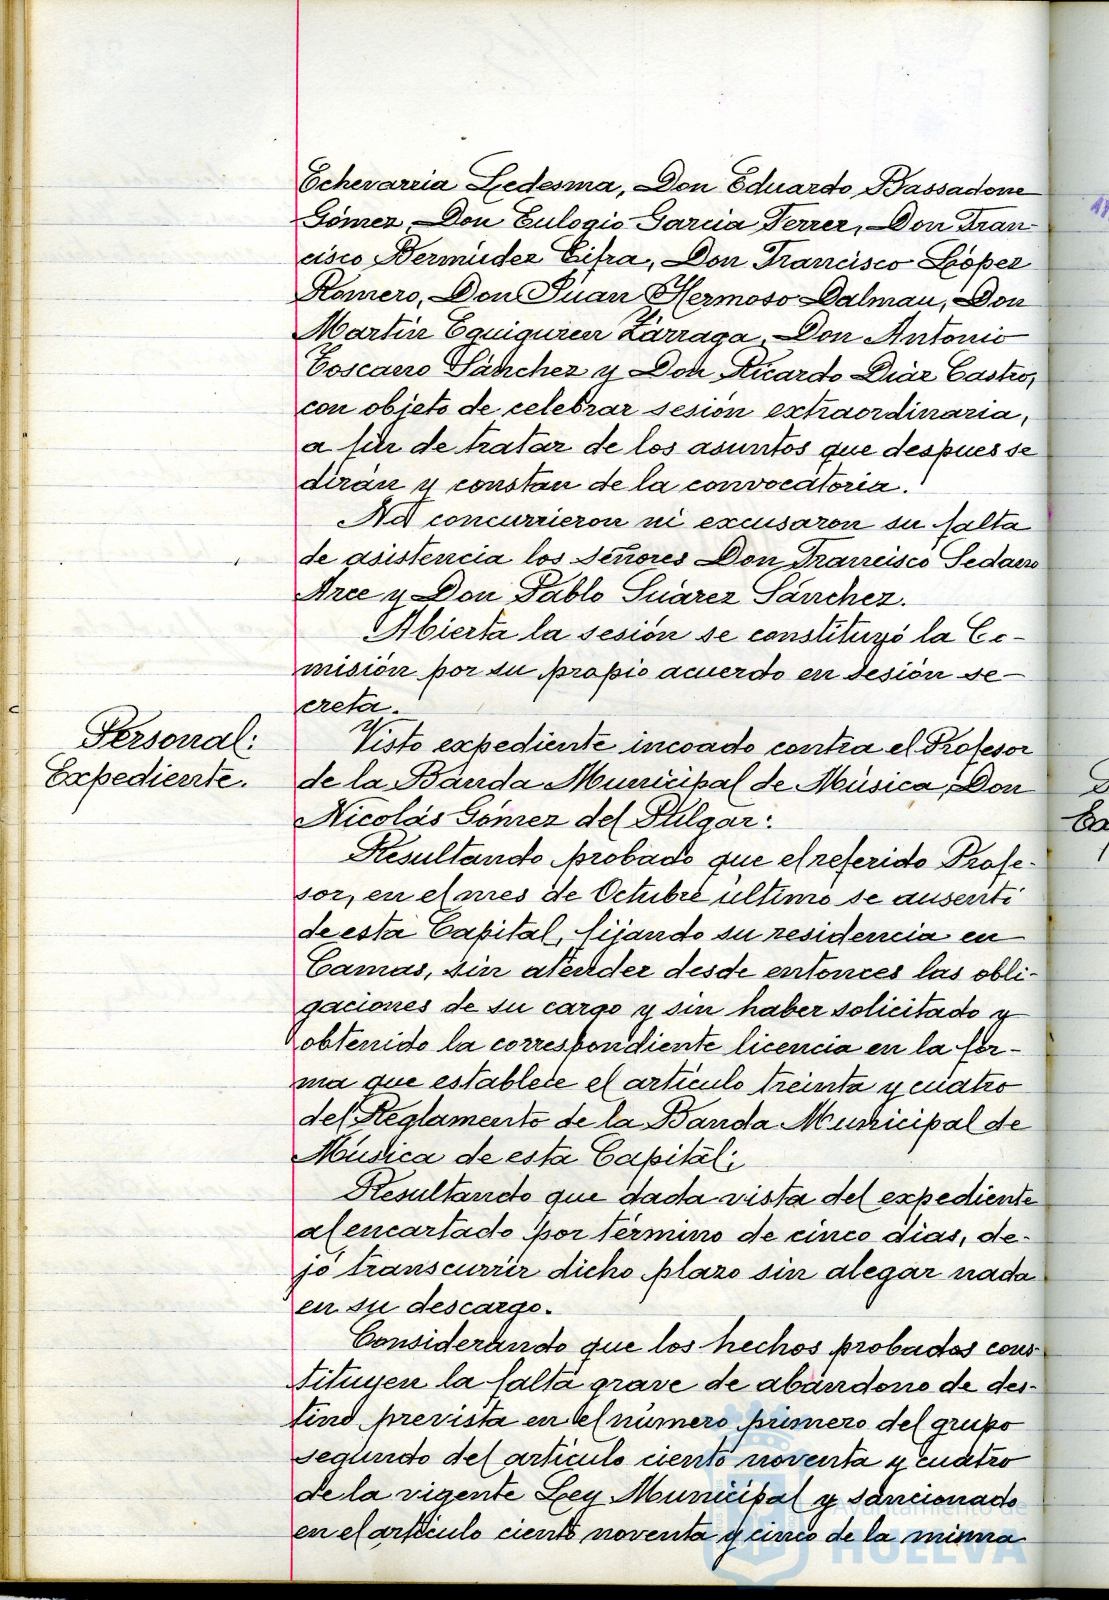 Echevarria Ledesma, Don Eduardo Bassadone
Gómez, Don Eulogio Garcia Ferrer, Don Fran-
cisco Bermúdez Cifra, Don Francisco López
Romero, Don Juan Hermoso Dalmau, Don
Martín Eguiguren Zárraga, Don Antonio
Toscano Sánchez y Don Ricardo Diáz Castro,
con objeto de celebrar sesión extraordinaria,
a fin de tratar de los asuntos que despues se
dirán y constan de la convocatoria.
No concurrieron ni excusaron su falta
de asistencia los Señores Don Francisco Sedano
Arce y Don Pablo Suárez Sánchez.
Abierta la sesión se constituyó la Co-
misión por su propio acuerdo en sesión se-
creta.
Personal:
Expediente.
Visto expediente incoado contra el Profesor
de la Banda Municipal de Música, Don
Nicolás Gómez del Pulgar:
Resultando probado que el referido Profe-
sor, en el mes de Octubre último se ausentó
de esta Capital, fijando su residencia en
Camas, sin atender desde entonces las obli-
gaciones de su cargo y sin haber solicitado y
obtenido la correspondiente licencia en la for-
ma que establece el artículo treinta y cuatro
del Reglamento de la Banda Municipal de
Música de esta Capital;
Resultando que dada vista del expediente
al encartado por término de cinco dias, de-
jó transcurrir dicho plazo sin alegar nada
en su descargo.
Considerando que los hechos probados cons-
tituyen la falta grave de abandono de des-
tino prevista en el número primero del grupo
segundo del artículo ciento noventa y cuatro
de la vigente Ley Municipal y sancionado
en el artículo ciento noventa y cinco de la misma
Ayuntamiento de
HUELVA